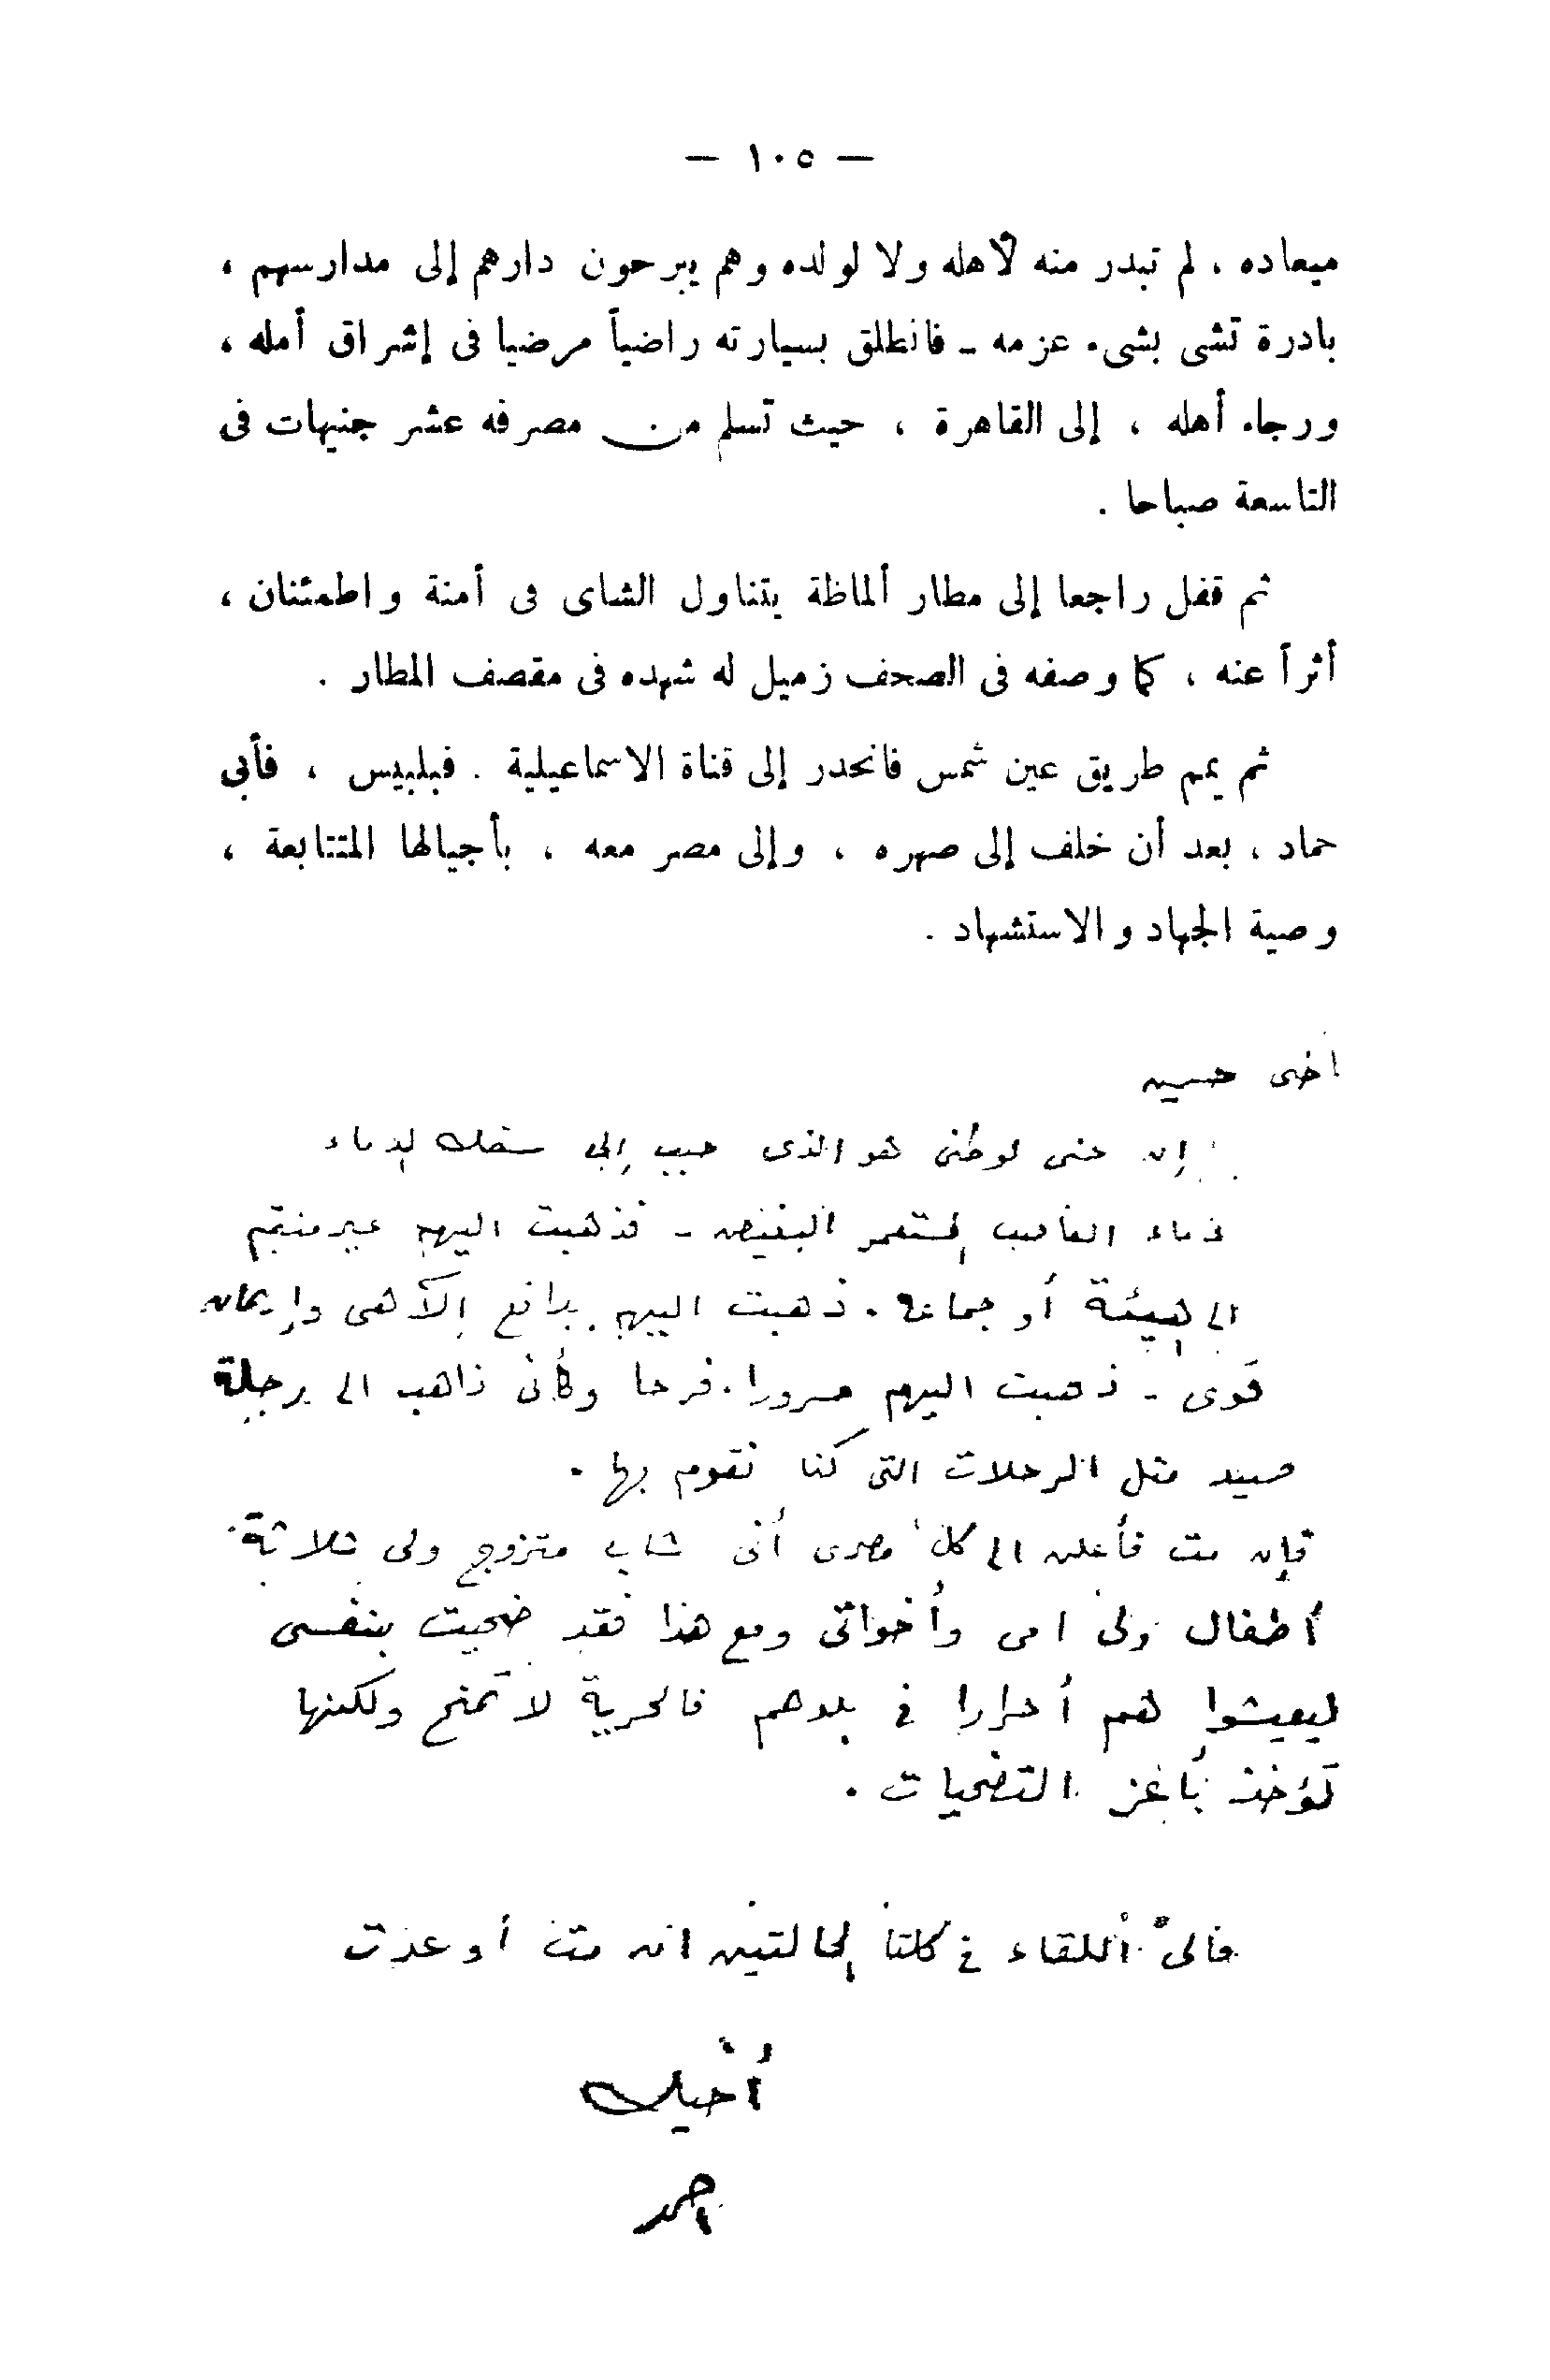 — ١٠٥ —
ميعاده ، لم تبدر منه لأهله ولا لولده وهم يبرحون دارهم إلى مدارسهم ،
بادرة تشى بشىء عزمه ـ فانطلق بسيارته راضياً مرضيا فى إشراق أمله ،
ورجاء أهله ، إلى القاهرة ، حيث تسلم من مصرفه عشر جنيهات فى
التاسعة صباحا .
ثم قفل راجعا إلى مطار ألماظة يتناول الشاى فى أمنة واطمئنان ،
أثراً عنه ، كما وصفه فى الصحف زميل له شهده فى مقصف المطار .
ثم يمم طريق عين شمس فانحدر إلى قناة الاسماعيلية . فبلبيس ، فأبى
حماد ، بعد أن خلف إلى صهره ، وإلى مصر معه ، بأجيالها المتتابعة ،
وصية الجهاد والاستشهاد .
أخى حسين
إن حبى لوطنى هو الذى حبب إلى سفك الدماء
دماء الغاصب المستعمر البغيض ـ فذهبت اليهم غير منتم
الى هيئة أو جماعة . ذهبت اليهم بدافع إلآهى وإيمان
قوى ـ ذهبت اليهم مسرورا . فرحا وكأنى ذاهب الى رحلة
صيد مثل الرحلات التى كنا نقوم بها .
فإن مت فأعلن الى كل مصرى أنى شاب متزوج ولى ثلاثة
أطفال ولى امى وأخواتى ومع هذا فقد ضحيت بنفسى
ليعيشوا هم أحرارا فى بلدهم فالحرية لا تمنح ولكنها
تؤخذ بأعز التضحيات .
فالى اللقاء فى كلتا الحالتين ان مت أو عدت
أخيك
احمد